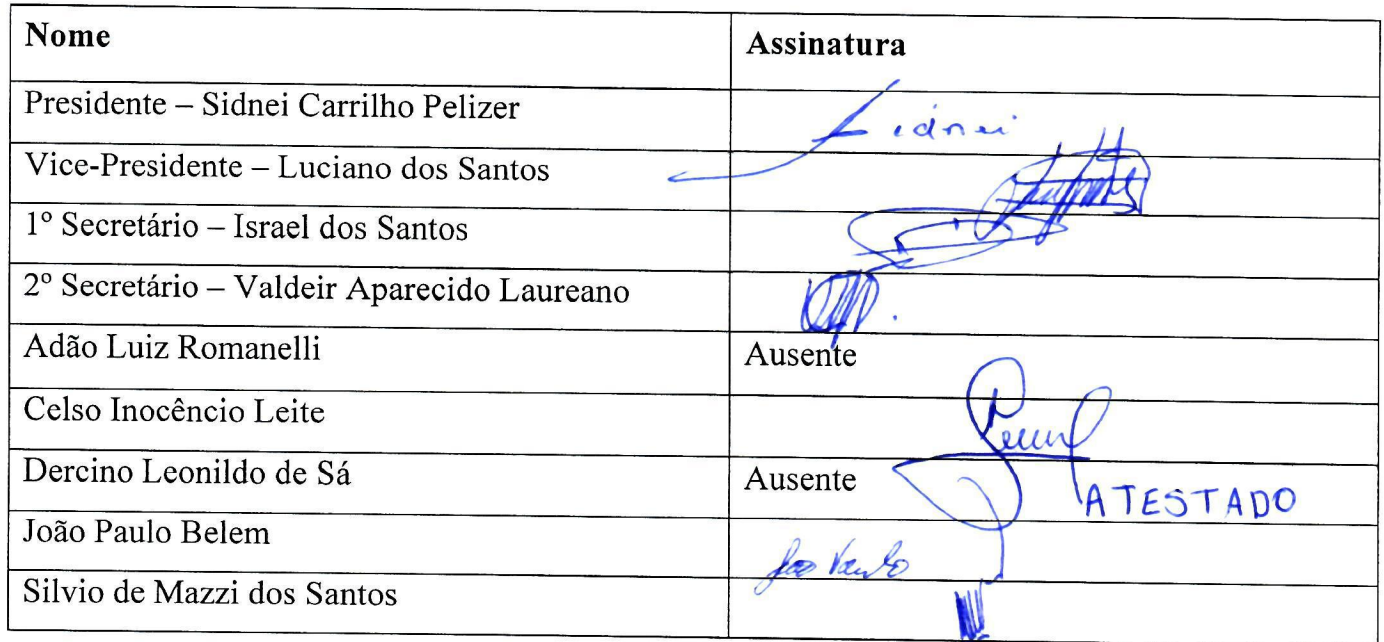 Nome Assinatura
Presidente – Sidnei Carrilho Pelizer Sidnei
Vice-Presidente – Luciano dos Santos
1º Secretário – Israel dos Santos
2º Secretário – Valdeir Aparecido Laureano
Adão Luiz Romanelli Ausente
Celso Inocêncio Leite
Dercino Leonildo de Sá Ausente ATESTADO
João Paulo Belem João Paulo
Silvio de Mazzi dos Santos